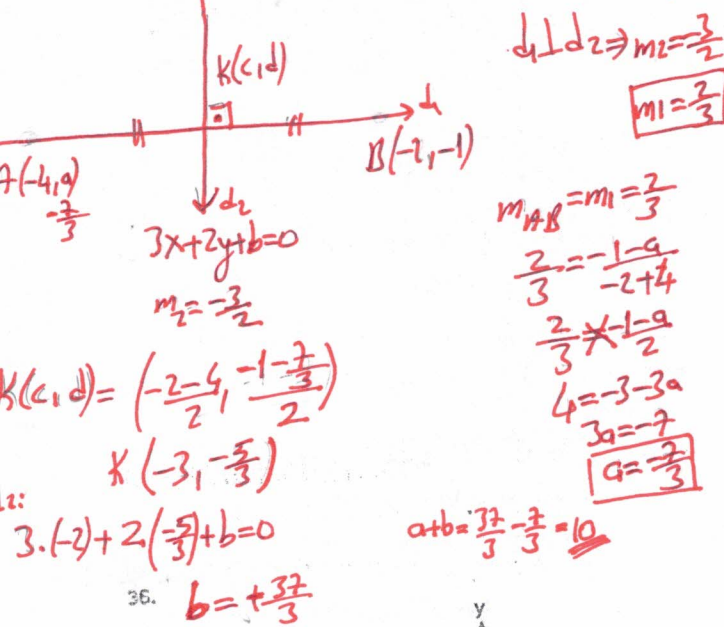 K(c,d)
d₁
A(-4,a)
-7/3
B(-2,-1)
d₂
3x+2y+b=0
m₂=-3/2
K(c,d)=(-2-4/2, -1-7/3/2)
K(-3,-5/3)
3.(-3)+2.(-5/3)+b=0
36. b=+37/3
d₁⊥d₂⇒m₂=-3/2
m₁=2/3
mAB=m₁=2/3
2/3=-1-a/-2+4
2/3=-1-a/2
4=-3-3a
3a=-7
a=-7/3
a+b=37/3-7/3=10
y